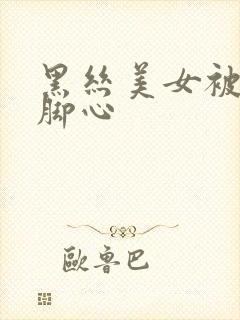 黑丝美女被
脚心
歐鲁巴